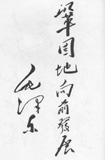 巩固地向前發展
毛澤东